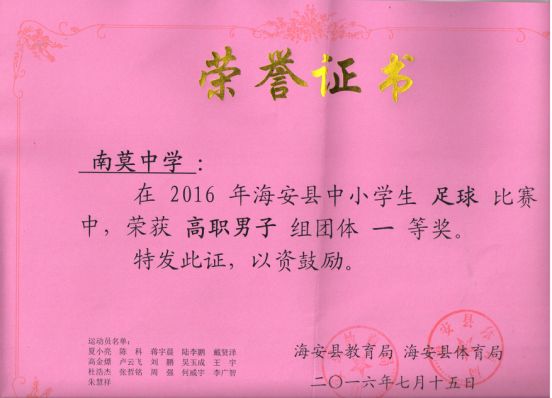 荣誉证书
南莫中学:
在 2016 年海安县中小学生 足球 比赛
中,荣获 高职男子 组团体 一 等奖。
特发此证,以资鼓励。
运动员名单:
夏小亮 陈 科 蒋宇晨 陆李鹏 戴贤泽
高金嫖 卢云飞 刘 鹏 吴玉成 王 宇
杜浩杰 张哲铭 周 强 何威宇 李广智
朱慧祥
海安县教育局 海安县体育局
二〇一六年七月十五日